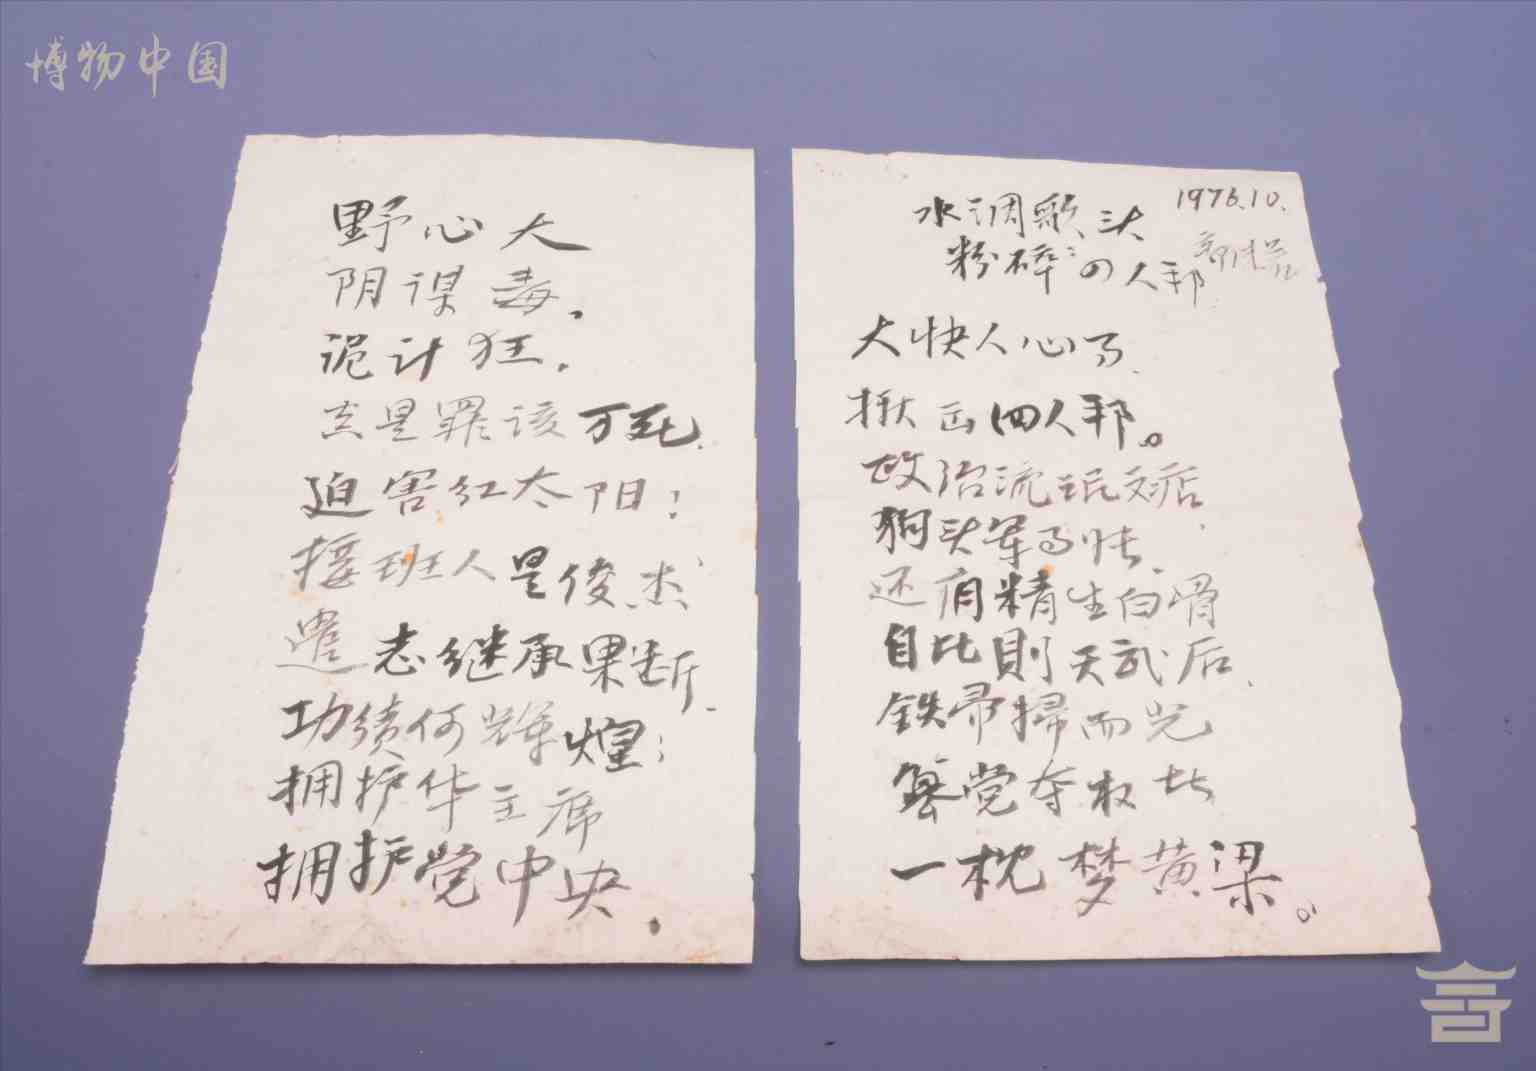 博物中国
1976.10.
水调歌头
郭沫若
粉碎四人邦
大快人心事、
揪出四人邦。
政治流氓文痞、
狗头军师张、
还有精生白骨
自比則天武后、
铁帚掃而光
篡党夺权者
一枕梦黄梁。
野心大
阴谋毒、
诡计狂.
真是罪该万死、
迫害红太阳！
接班人是俊杰
遗志继承果断、
功绩何辉煌；
拥护华主席
拥护党中央.